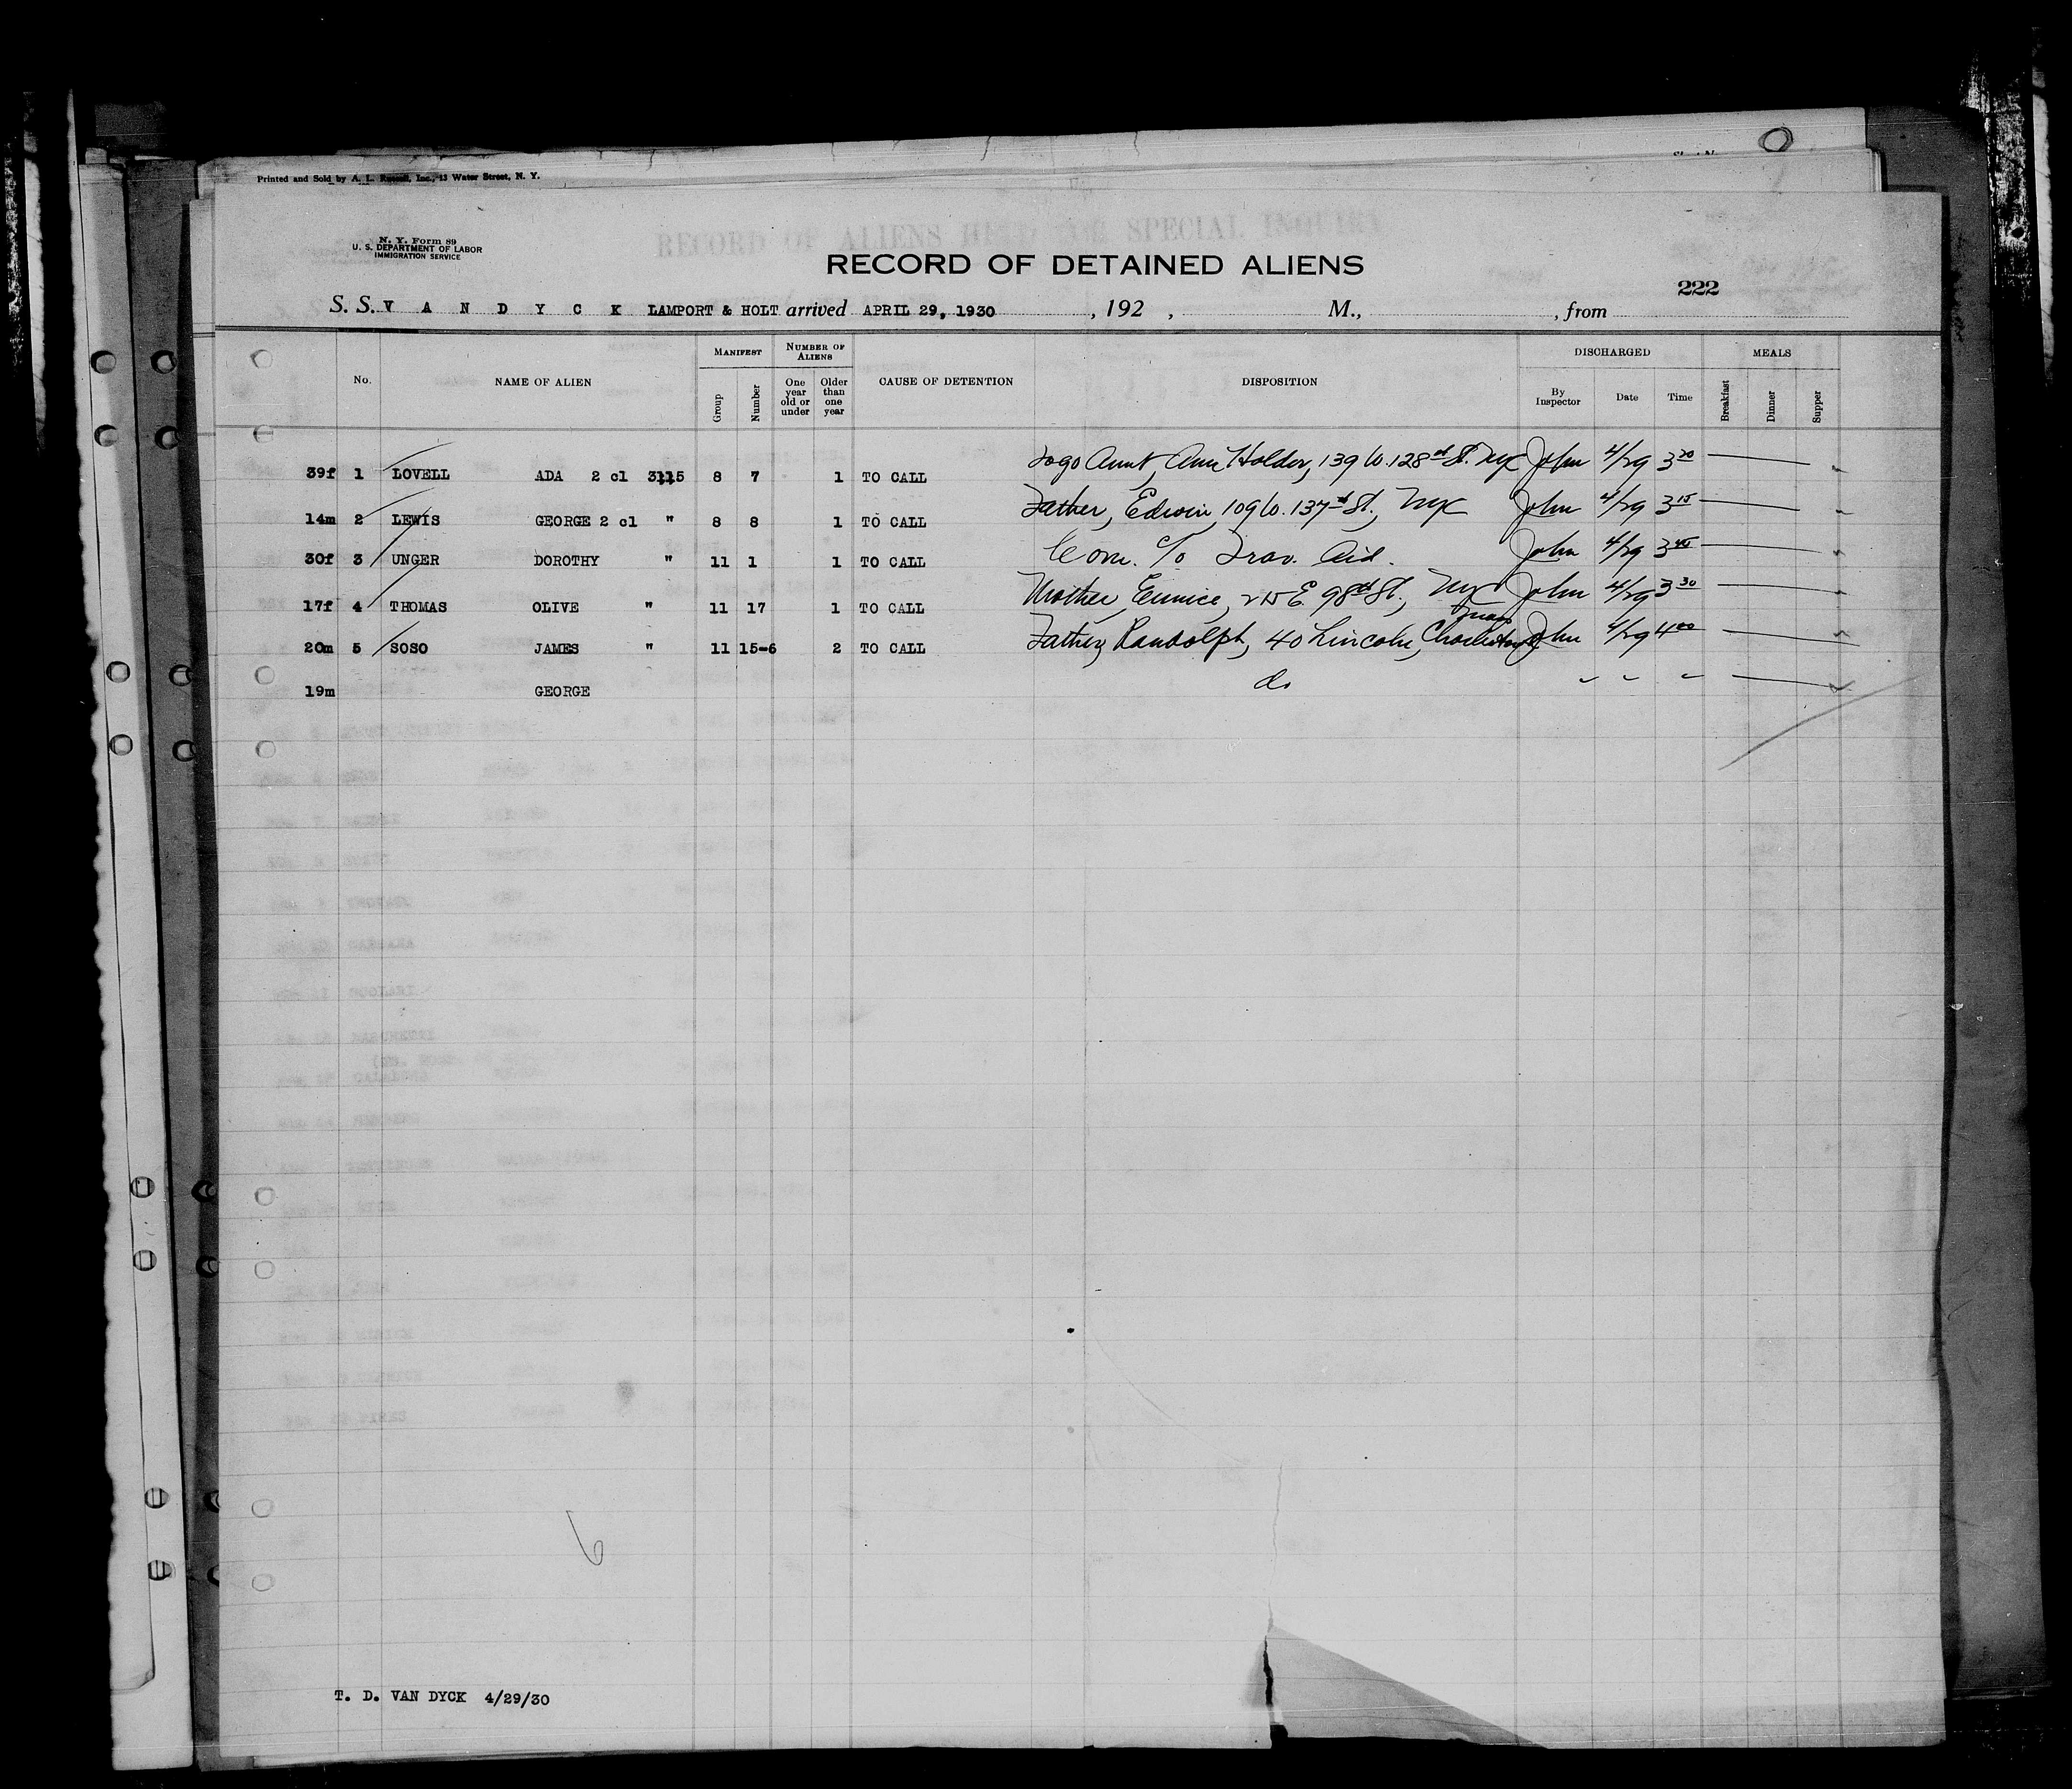 Printed and Sold by A. L. Russell, Inc., 13 Water Street, N. Y.
N. Y. Form 89
U. S. DEPARTMENT OF LABOR
IMMIGRATION SERVICE
RECORD OF ALIENS HELD FOR SPECIAL INQUIRY
RECORD OF DETAINED ALIENS
222
S. S. V A N D Y C K LAMPORT & HOLT arrived APRIL 29, 1930 , 192 , M., , from
No. NAME OF ALIEN MANIFEST Group Number NUMBER OF ALIENS One year old or under Older than one year CAUSE OF DETENTION DISPOSITION DISCHARGED By Inspector Date Time MEALS Breakfast Dinner Supper
39f 1 LOVELL ADA 2 cl 3115 8 7 1 TO CALL Aunt, Ann Holder, 139 W. 128 St. NYC John 4/29 3 20
14m 2 LEWIS GEORGE 2 cl " 8 8 1 TO CALL Father, Edwin, 109 W. 137 St., NYC John 4/29 3 15
30f 3 UNGER DOROTHY " 11 1 1 TO CALL Com. c/o Trav. Aid. John 4/29 3 45
17f 4 THOMAS OLIVE " 11 17 1 TO CALL Mother, Eunice, 215 E. 98th St., NYC John 4/29 3 30
20m 5 SOSO JAMES " 11 15-6 2 TO CALL Father, Randolph, 40 Lincoln, John 4/29 4 00
19m GEORGE do " " "
6
T. D. VAN DYCK 4/29/30